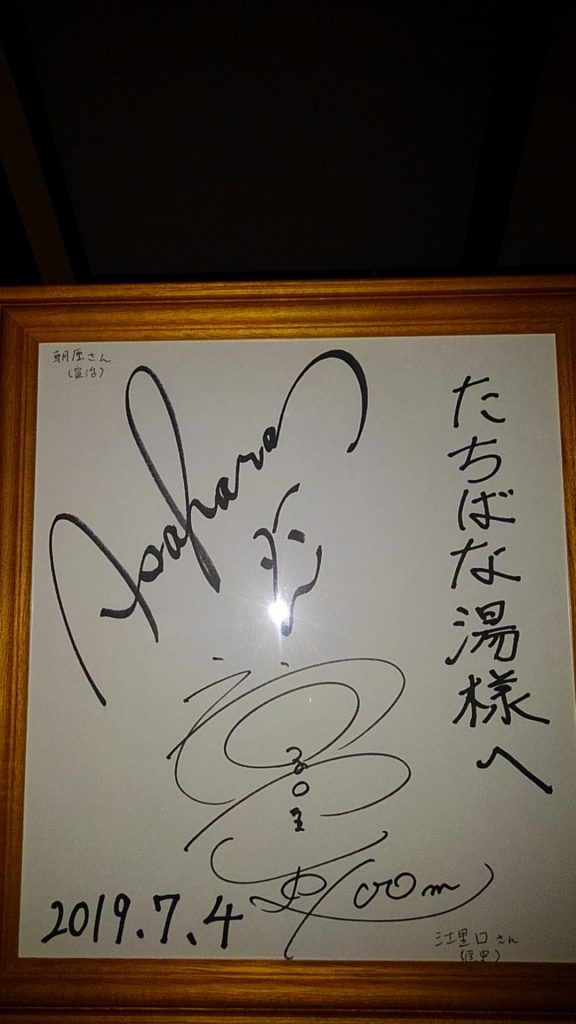 朝原さん
(宣治)
たちばな湯様へ
Asahara
100m
2019.7.4
江里口さん
(匡史)